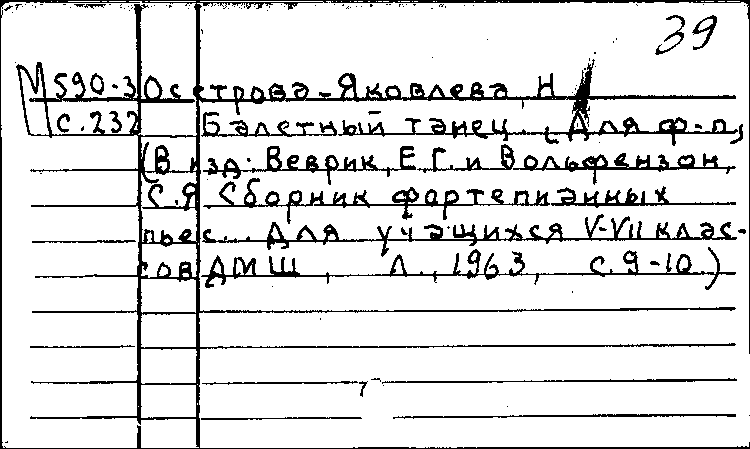 39
М590-3 Осетрова-Яковлева, Н
с.232 Балетный танец. [Для ф-п]
(В изд: Веврик, Е.Г. и Вольфензон,
С.Я Сборник фортепианных
пьес... Для учащихся V-VII клас-
сов ДМШ, Л., 1963, с.9-10.)